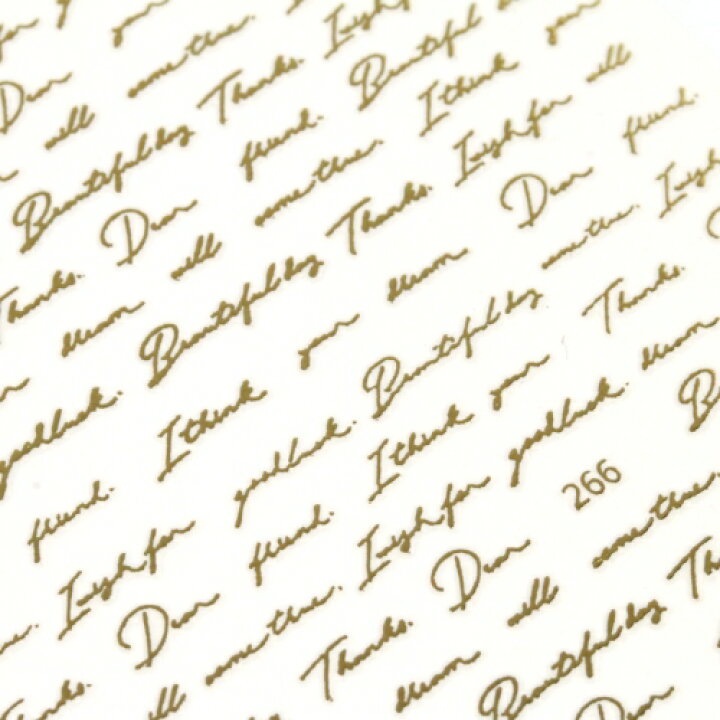 for your
Dear your
will come true.
Beautiful day Thanks. I wish for
Thanks. Dear friend. Beautiful
dream will come true. I think your
Beautiful day Thanks. I wish for will
good luck.
friend. I think your dream Dear friend.
I wish for good luck. Beautiful day come true. I wish
Dear friend. I think your Thanks.
Thanks. will come true. I wish for good luck. dream
Thanks. Dear 266
dream will come true.
Beautiful day
Dear